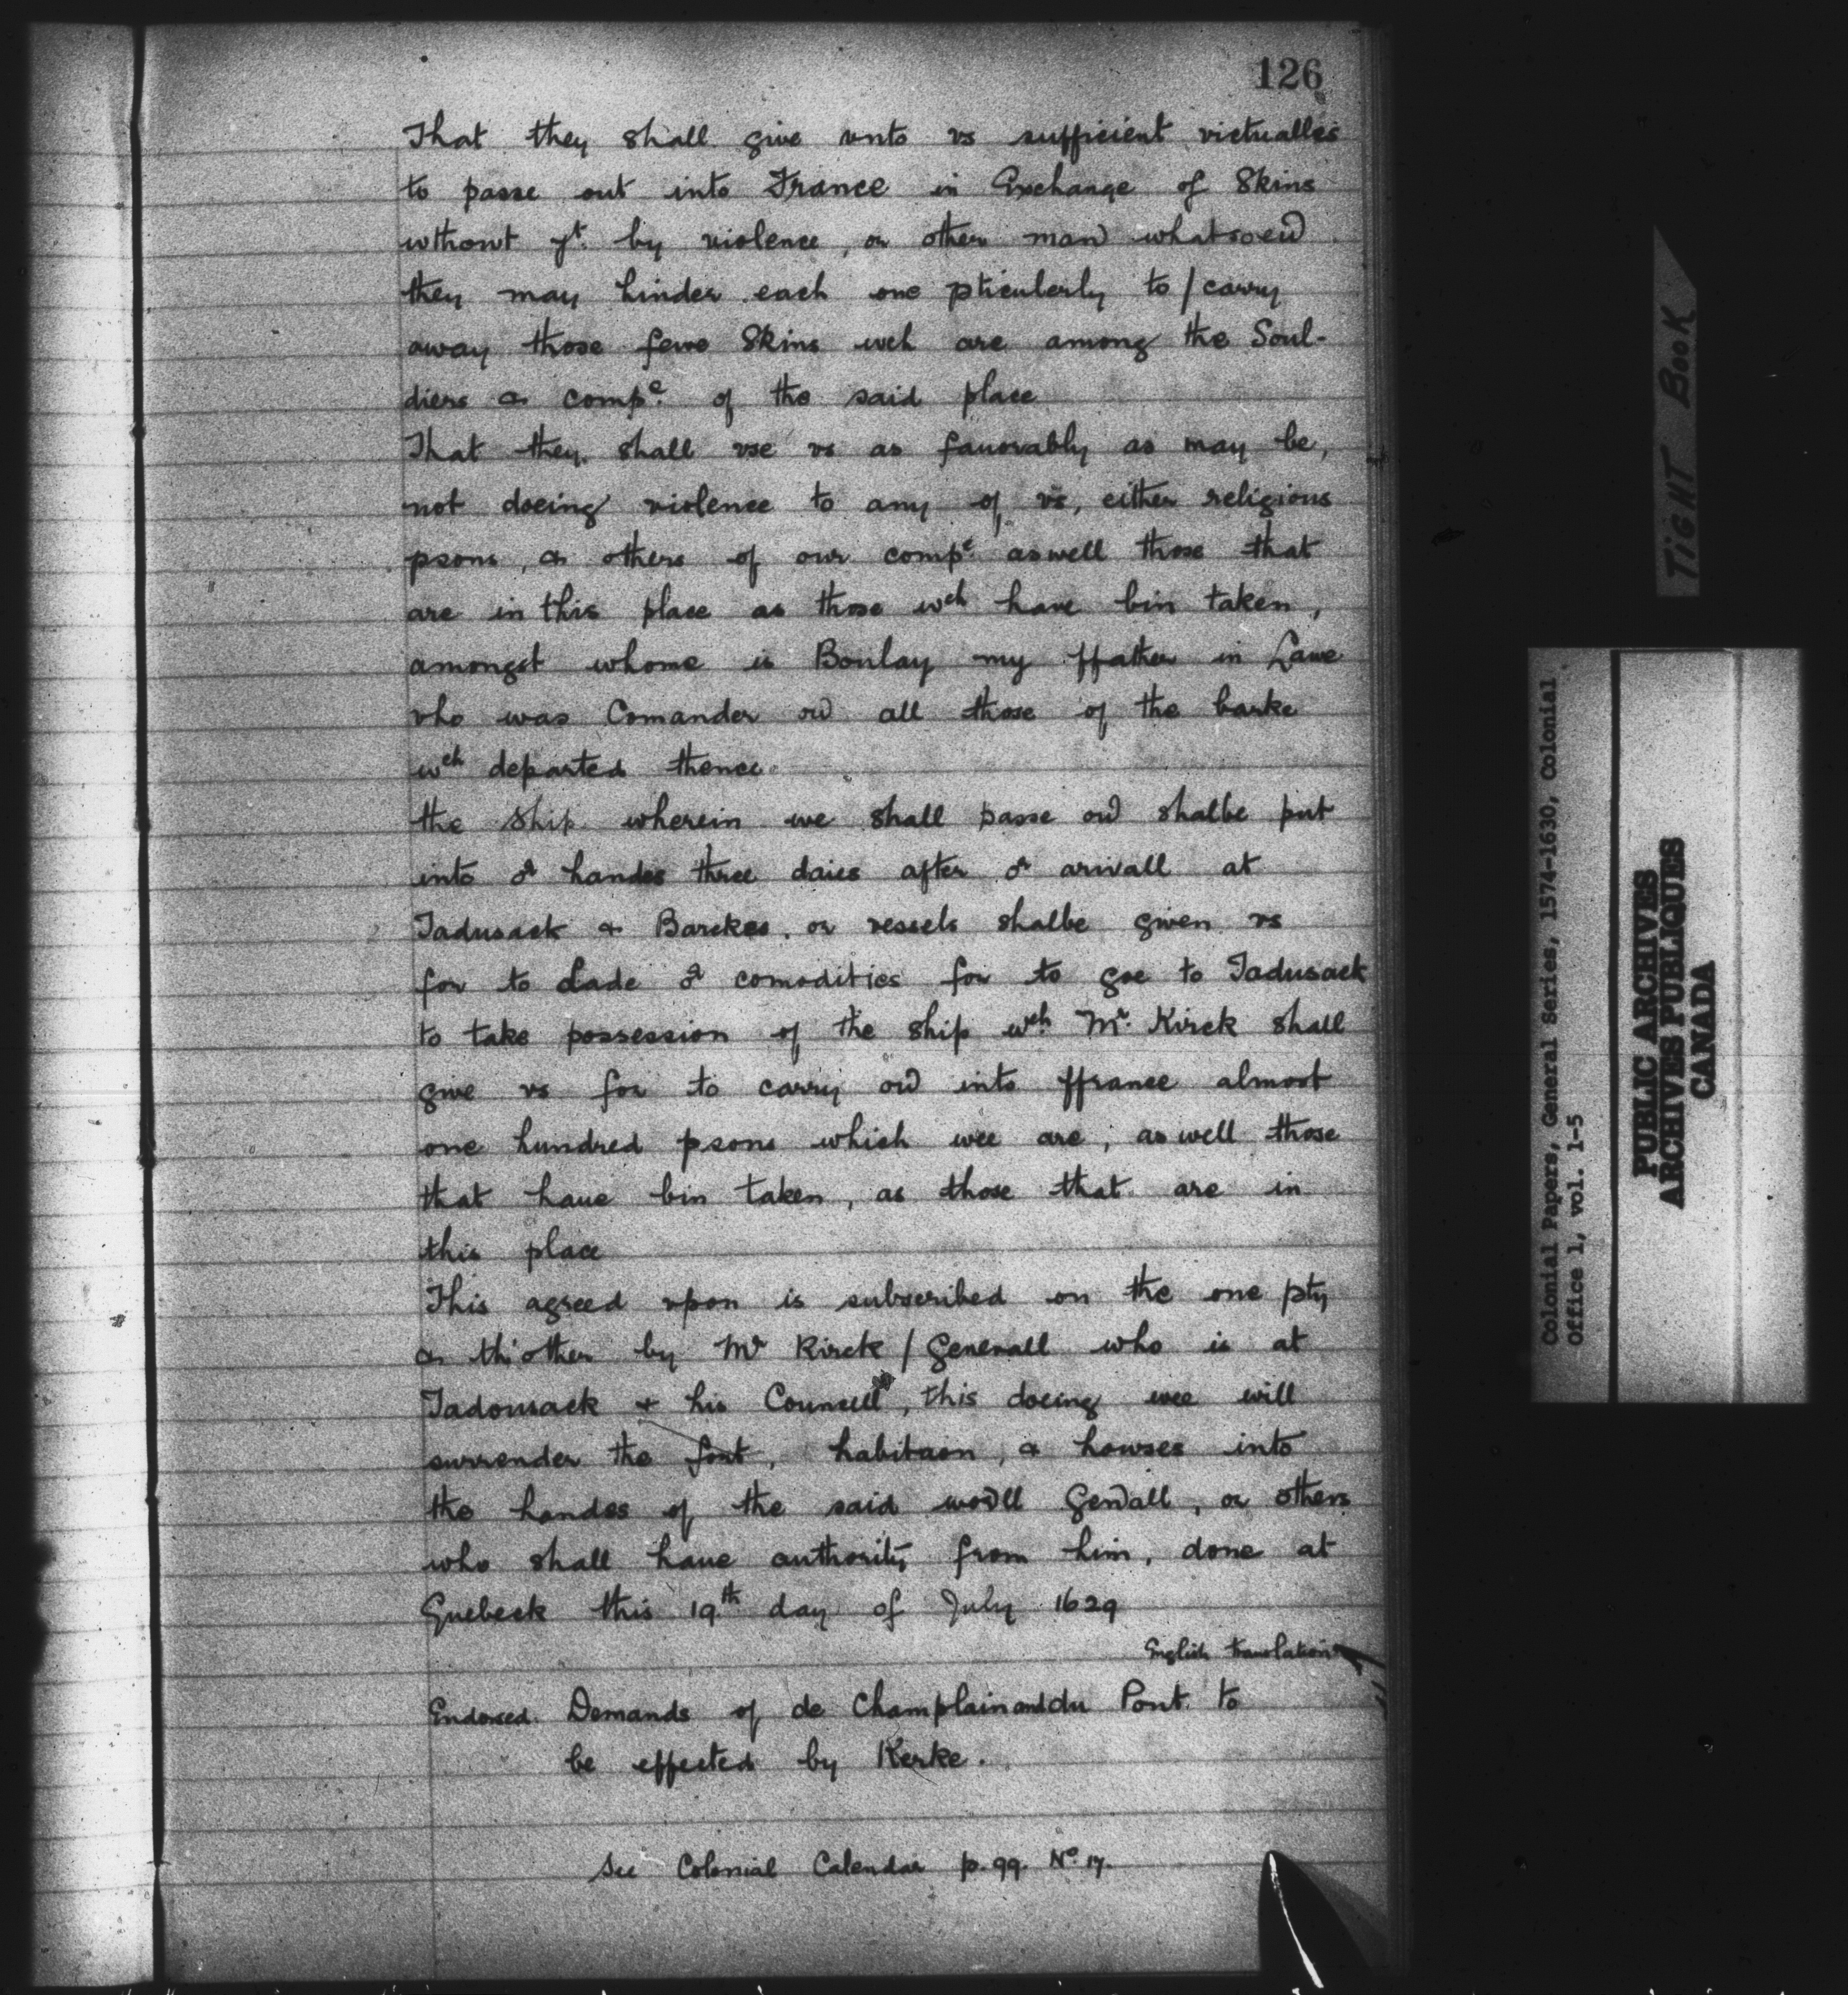 126
That they shall give vnto vs sufficient victualles
to passe out into France in Exchange of Skins
wthout yt. by violence, or other man whatsoeu
they may hinder each one pticulerly to / carry
away those fewe Skins wch are among the Soul-
diers & compe. of the said place
That they shall vse vs as fauorably as may be,
not doeing violence to any of vs, either religious
psons, & others of our compe. aswell those that
are in this place as those wch have bin taken,
amongst whome is Boulay my ffather in Lawe
who was Comander ou all those of the barke
wch departed thence
the Ship wherein we shall passe ou shalbe put
into or handes three daies after or arivall at
Tadusack & Barckes, or vessels shalbe given vs
for to Lade or comodities for to goe to Tadusack
to take possession of the ship wch Mr. Kirck shall
give vs for to carry ou into ffrance almost
one hundred psons which wee are, as well those
that haue bin taken, as those that are in
this place
This agreed vpon is subscribed on the one pty
& th'other by Mr Kirck / Generall who is at
Tadousack & his Councell, this doeing wee will
surrender the fort, habitaon, & howses into
the handes of the said Genall, or others
who shall haue authority from him, done at
Quebeck this 19th day of July 1629
English translation
Endorsed. Demands of de Champlain and du Pont to
be effected by Kerke.
See Colonial Calendar p. 99. No. 17.
TIGHT BOOK
Colonial Papers, General Series, 1574-1630, Colonial
Office 1, vol. 1-5
PUBLIC ARCHIVES
ARCHIVES PUBLIQUES
CANADA